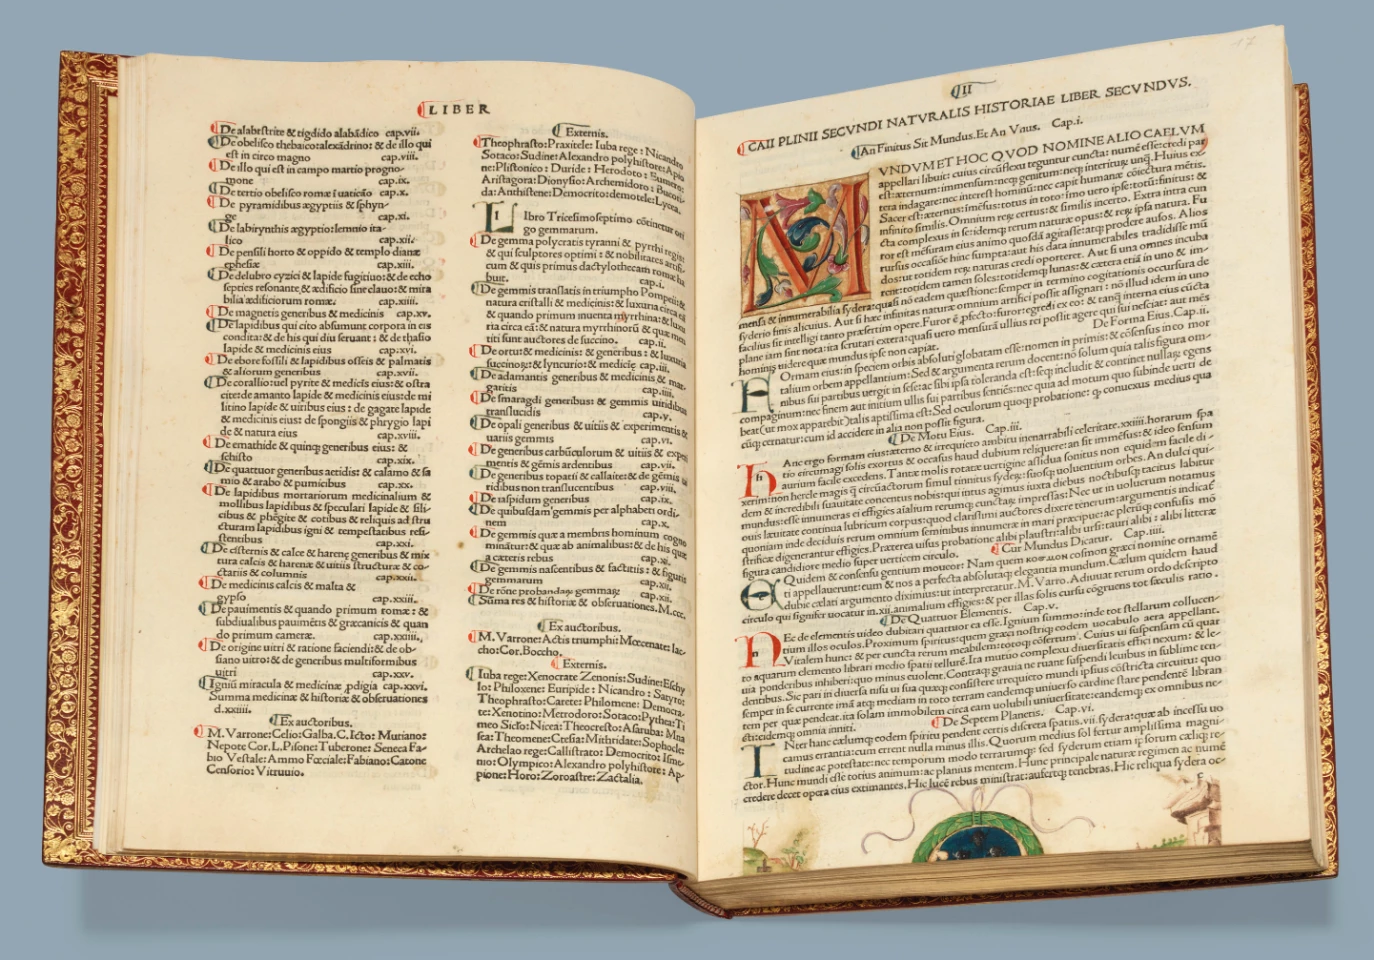 LIBER
De alabestrite & tigdido alabãdico cap.vii.
De obelisco thebaico:alexãdrino: & de illo qui
est in circo magno cap.viii.
De illo qui est in campo martio progno-
mone cap.ix.
De tertio obelisco romæ ĩ uaticão cap.x.
De pyramidibus ægyptiis & sphyn-
ge cap.xi.
De labirynthis ægyptio:lemnio ita-
lico cap.xii.
De pensili horto & oppido & templo dianæ
ephesiæ cap.xiii.
De delubro cyzici & lapide fugitiuo:& de echo
septies resonante & ædificio sine clauo:& mira
bilia ædificiorum romæ. cap.xiiii.
De magnetis generibus & medicinis cap.xv.
De lapidibus qui cito absumunt corpora in eis
condita:& de his qui diu seruant: & de thasio
lapide & medicinis eius cap.xvi.
De ebore fossili & lapidibus osseis & palmatis
& aliorum generibus cap.xvii.
De corallio:uel pyrite & medicĩs eius:& ostra
cite:de amanto lapide & medicinis eius:de mi
litino lapide & uiribus eius: de gagate lapide
& medicinis eius: de spongiis & phrygio lapi
de & natura eius cap.xviii.
De emathite & quinq; generibus eius: &
schisto cap.xix.
De quattuor generibus aetidis: & calamo & sa
mio & arabo & pumicibus cap.xx.
De lapidibus mortariorum medicinalium &
mollibus lapidibus & speculari lapide & sili-
cibus & phẽgite & cotibus & reliquis ad stru
cturam lapidibus igni & tempestatibus resi-
stentibus cap.xxi.
De cisternis & calce & harenę generibus & mix
tura calcis & harenæ & uitiis structuræ & co-
ctariis & columnis cap.xxii.
De medicinis calcis & malta &
gypso cap.xxiii.
De pauimentis & quando primum romæ: &
subdiualibus pauimẽtis & græcanicis & quan
do primum cameræ. cap.xxiiii.
De origine uitri & ratione faciendi:& de ob-
siano uitro:& de generibus multiformibus
uitri cap.xxv.
Igniũ miracula & medicinæ ,pdigia cap.xxvi.
Summa medicinæ & historiæ & obseruationes
d.xxiiii.
Ex auctoribus.
M.Varrone:Celio:Galba.C.Icto: Mutiano:
Nepote Cor.L.Pisone:Tuberone: Seneca Fa-
bio Vestale:Ammo Fœciale:Fabiano:Catone
Censorio:Vitruuio.
Externis.
Theophrasto:Praxitele: Iuba rege : Nicandro
Sotaco:Sudine:Alexandro polyhistore:Apio
ne:Plistonico : Duride : Herodoto : Eumero:
Aristagora:Dionysio:Archemidoro : Bucori-
da:Anthistene:Democrito:demotele:Lycea.
LIbro Tricesimoseptimo cõtinetur ori
go gemmarum.
De gemma polycratis tyranni & pyrrhi regis:
& qui sculptores optimi : & nobilitates artifi-
cum & quis primus dactylothecam romæ ha
buit. cap.i.
De gemmis translatis in triumpho Pompeii:&
natura cristalli & medicinis:& luxuria circa eã
& quando primum inuenta myrrhina:& luxu
ria circa eã:& natura myrrhinorũ & quæ men
titi sunt auctores de succino. cap.ii.
De ortu:& medicinis: & generibus : & luxuria
succinorum:& lyncurio:& medicĩę cap.iii.
De adamantis generibus & medicinis & mar-
garitis cap.iiii.
De smaragdi generibus: & gemmis uiridibus
translucidis cap.v.
De opali generibus & uitiis & experimentis &
uariis gemmis cap.vi.
De generibus carbũculorum & uitiis & experi
mentis & gẽmis ardentibus cap.vii.
De generibus topatii & callaitę:& de gẽmis ui
ridibus non translucentibus cap.viii.
De iaspidum generibus cap.ix.
De quibusdam gemmis per alphabeti ordi-
nem cap.x.
De gemmis quæ a membris hominum cogno
minãtur:& quæ ab animalibus:& de his quæ
a cæteris rebus cap.xi.
De gemmis nascentibus & factitiis : & figuris
gemmarum cap.xii.
De rõne probandarum gemmarum cap.xii.
Suma res & historiæ & obseruationes.M.ccc.
Ex auctoribus.
M.Varrone:Actis triumphi:Mecenate:Iac-
cho:Cor.Boccho.
Externis.
Iuba rege:Xenocrate Zenonis:Sudine:Eschy
lo: Philoxene: Euripide : Nicandro : Satyro:
Theophrasto:Carete: Philomene: Democra-
te: Xenotino: Metrodoro:Sotaco:Pythea:Ti
meo Siclio:Nicea:Theocresto:Asaruba: Mna
sea:Theomene:Ctesia:Mithridate:Sophocle:
Archelao rege:Callistrato: Democrito: Isme-
nio:Olympico:Alexandro polyhistore: Ap-
pione:Horo:Zoroastre:Zactalia.
17
II
CAII PLINII SECVNDI NATVRALIS HISTORIAE LIBER SECVNDVS.
An Finitus Sit Mundus.Et An Vnus. Cap.i.
MVNDVM ET HOC QVOD NOMINE ALIO CAELVM
appellari libuit: cuius circũflexu teguntur cuncta: numẽ esse:credi par
est:æternum:immensum:neq; genitum:neq; interiturum unq. Huius ex
tera indagare:nec interest hominũ:nec capit humanæ cõiectura mẽtis.
Sacer est:æternus:imẽsus:totus in toto: imo uero ipse: totũ:finitus: &
infinito similis. Omnium rerum certus:& similis incerto. Extra intra cun
cta complexus in se:idemq; rerum naturæ opus:& rerum ipsa natura. Fu
ror est mẽsuram eius animo quosdã agitasse:atq; prodere ausos. Alios
rursus occasiõe hinc sumpta:aut his data innumerabiles tradidisse mũ
dos:ut totidem rerum naturas credi oporteret. Aut si una omnes incuba
rent:totidem tamen soles:totidemq; lunas:& cætera etiã in uno & im-
mensa & innumerabilia sydera:quasi nõ eadem quæstione:semper in termino cogitationis occursura de
syderio finis alicuius. Aut si hæc infinitas natura omnium artifici possit assignari : nõ illud idem in uno
facilius sit intelligi tanto præsertim opere.Furor ẽ ,pfecto:furor:egredi ex eo: & tanq; interna eius cũcta
plane iam sint nota:ita scrutari extera:quasi uero mensurã ullius rei possit agere qui sui nesciat: aut mẽs
hominis uidere quæ mundus ipse non capiat. De Forma Eius.Cap.ii.
FOrmam eius:in speciem orbis absoluti globatam esse:nomen in primis:& cõsensus in eo mor
talium orbem appellantium:Sed & argumenta rerum docent:nõ solum quia talis figura om-
nibus sui partibus uergit in sese:ac sibi ipsa toleranda est:seq; includit & continet nullarum egens
compaginum:nec finem aut initium ullis sui partibus sentiẽs:nec quia ad motum quo subinde uerti de
beat(ut mox apparebit)talis aptissima est:Sed oculorum quoq; probatione: q; conuexus medius qua
cũq; cernatur:cum id accidere in alia non possit figura.
De Motu Eius. Cap.iii.
HAnc ergo formam eius:æterno & irrequieto ambitu inenarrabili celeritate.xxiiii.horarum spa
tio circumagi solis exortus & occasus haud dubium reliquere:an sit immẽsus:& ideo sensum
aurium facile excedens.Tantæ molis rotatæ uertigine assidua sonitus non equidem facile di-
xerim:non hercle magis q̃ circũactorum simul tinnitus syderum:suosq; uoluentium orbes.An dulci qui-
dem & incredibili suauitate concentus nobis:qui intus agimus iuxta diebus noctibusq; tacitus labitur
mundus:esse innumeras ei effigies aĩalium rerumq; cunctarum impressas:Nec ut in uolucrum notamus
ouis læuitate continua lubricum corpus:quod clarissimi auctores dixere tenerum:argumentis indicat
quoniam inde deciduis rerum omnium seminibus innumeræ in mari præcipue:ac plerũq; confusis mõ
strificæ dignerantur effigies.Præterea uisus probatione alibi plaustri:alibi ursi:tauri alibi : alibi litteræ
figura candidiore medio super uerticem circulo. Cur Mundus Dicatur. Cap.iiii.
EQuidem & consensu gentium moueor: Nam quem ΚΟϹΜΟΝ cosmon græci nomine ornamẽ
ti appellauerunt:eum & nos a perfecta absolutaq; elegantia mundum.Cælum quidem haud
dubie cælati argumento diximus:ut interpretatur.M.Varro.Adiuuat rerum ordo descripto
circulo qui signifer uocatur in.xii.animalium effigies:& per illas solis cursu cõgruens tot sæculis ratio.
De Quattuor Elementis. Cap.v.
NEc de elementis uideo dubitari quattuor ea esse.Ignium summo:inde tot stellarum collucen-
tium illos oculos.Proximum spiritus:quem græci nostriq; eodem uocabulo aera appellant.
Vitalem hunc:& per cuncta rerum meabilem:totoq; cõsertum. Cuius ui suspensam cũ quar
to aquarum elemento librari medio spatii tellurẽ.Ita mutuo complexu diuersitatis effici nexum: & le-
uia ponderibus inhiberi:quo minus euolent.Contraq; grauia ne ruant suspendi leuibus in sublime ten-
dentibus.Sic pari in diuersa nisu ui sua quæq; consistere irrequieto mundi ipsius cõstricta circuitu: quo
semper in se currente imã atq; mediam in toto terram eandemq; uniuerso cardine stare pendentẽ libran
tem per quæ pendeat.ita solam immobilem circa eam uolubili uniuersitate:eandemq; ex omnibus ne-
cti:eidemq; omnia inniti. De Septem Planetis. Cap.vi.
INter hanc cælumq; eodem spiritu pendent certis discreta spatiis.vii.sydera:quæ ab incessu uo
camus errantia:cum errent nulla minus illis. Quorum medius sol fertur amplissima magni-
tudine ac potestate:nec temporum modo terrarumq; sed syderum etiam ipsorum cæliq; re-
ctor.Hunc mundi esse totius animum:ac planius mentem.Hunc principale naturæ regimen ac numẽ
credere decet opera eius extimantes.Hic lucẽ rebus ministrat:aufertq; tenebras.Hic reliqua sydera oc-
c